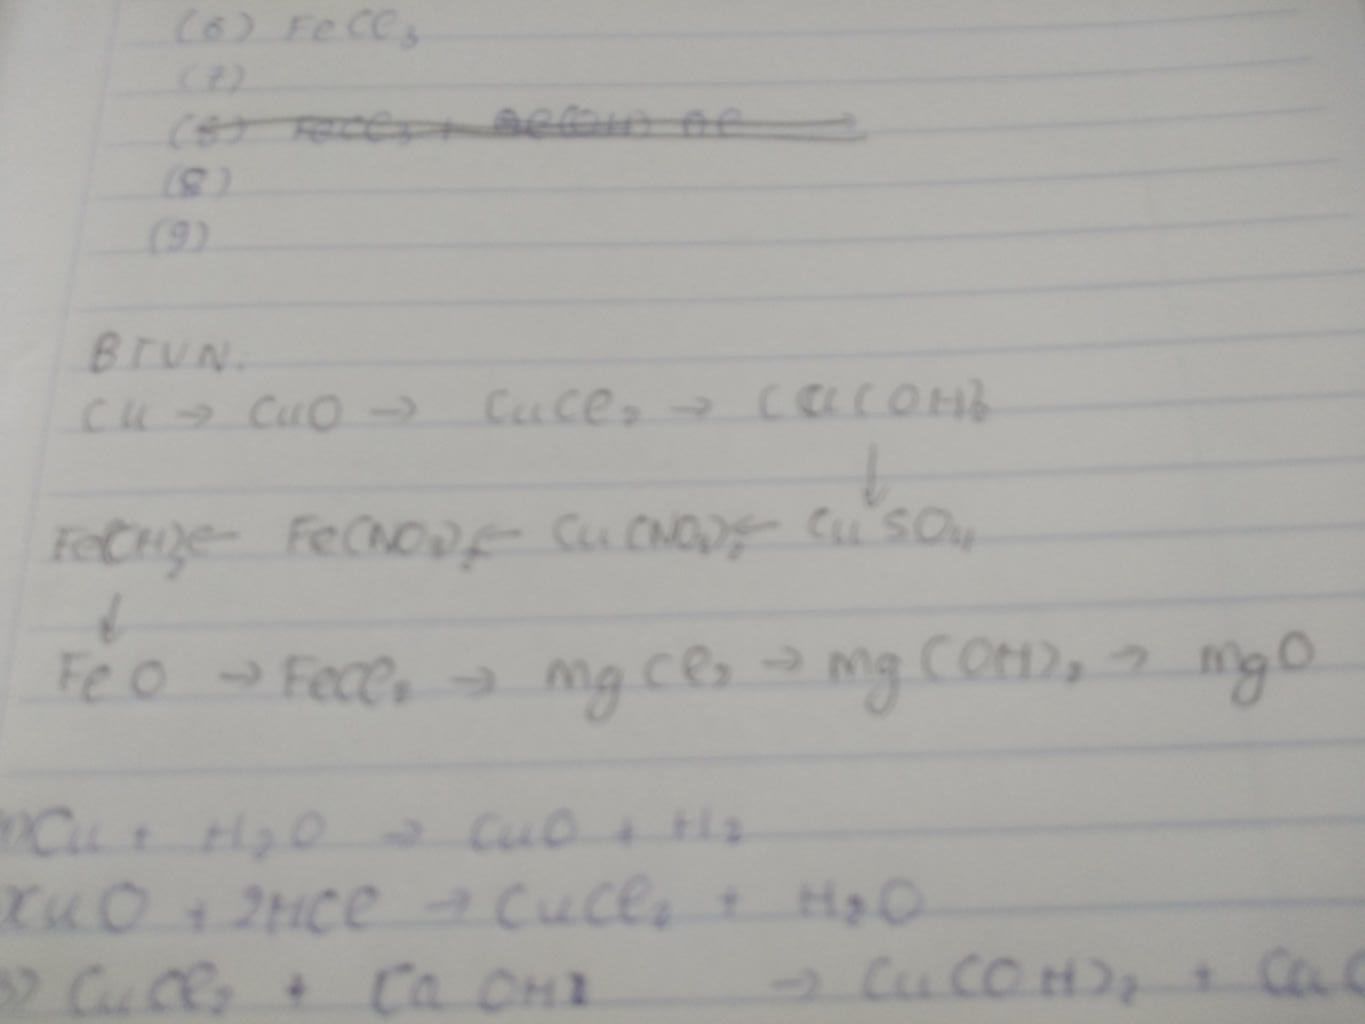 (6) FeCl3
(7)
(8)
(9)
BTVN.
Cu → CuO → CuCl2 → Cu(OH)2
↓
Fe(OH)2 ← Fe(NO3)2 ← Cu(NO3)2 ← CuSO4
↓
FeO → FeCl2 → mgCl2 → mg(OH)2 → mgO
1) Cu + H2O → CuO + H2
CuO + 2HCl → CuCl2 + H2O
3) CuCl2 + Ca OH2 → Cu(OH)2 + CaC